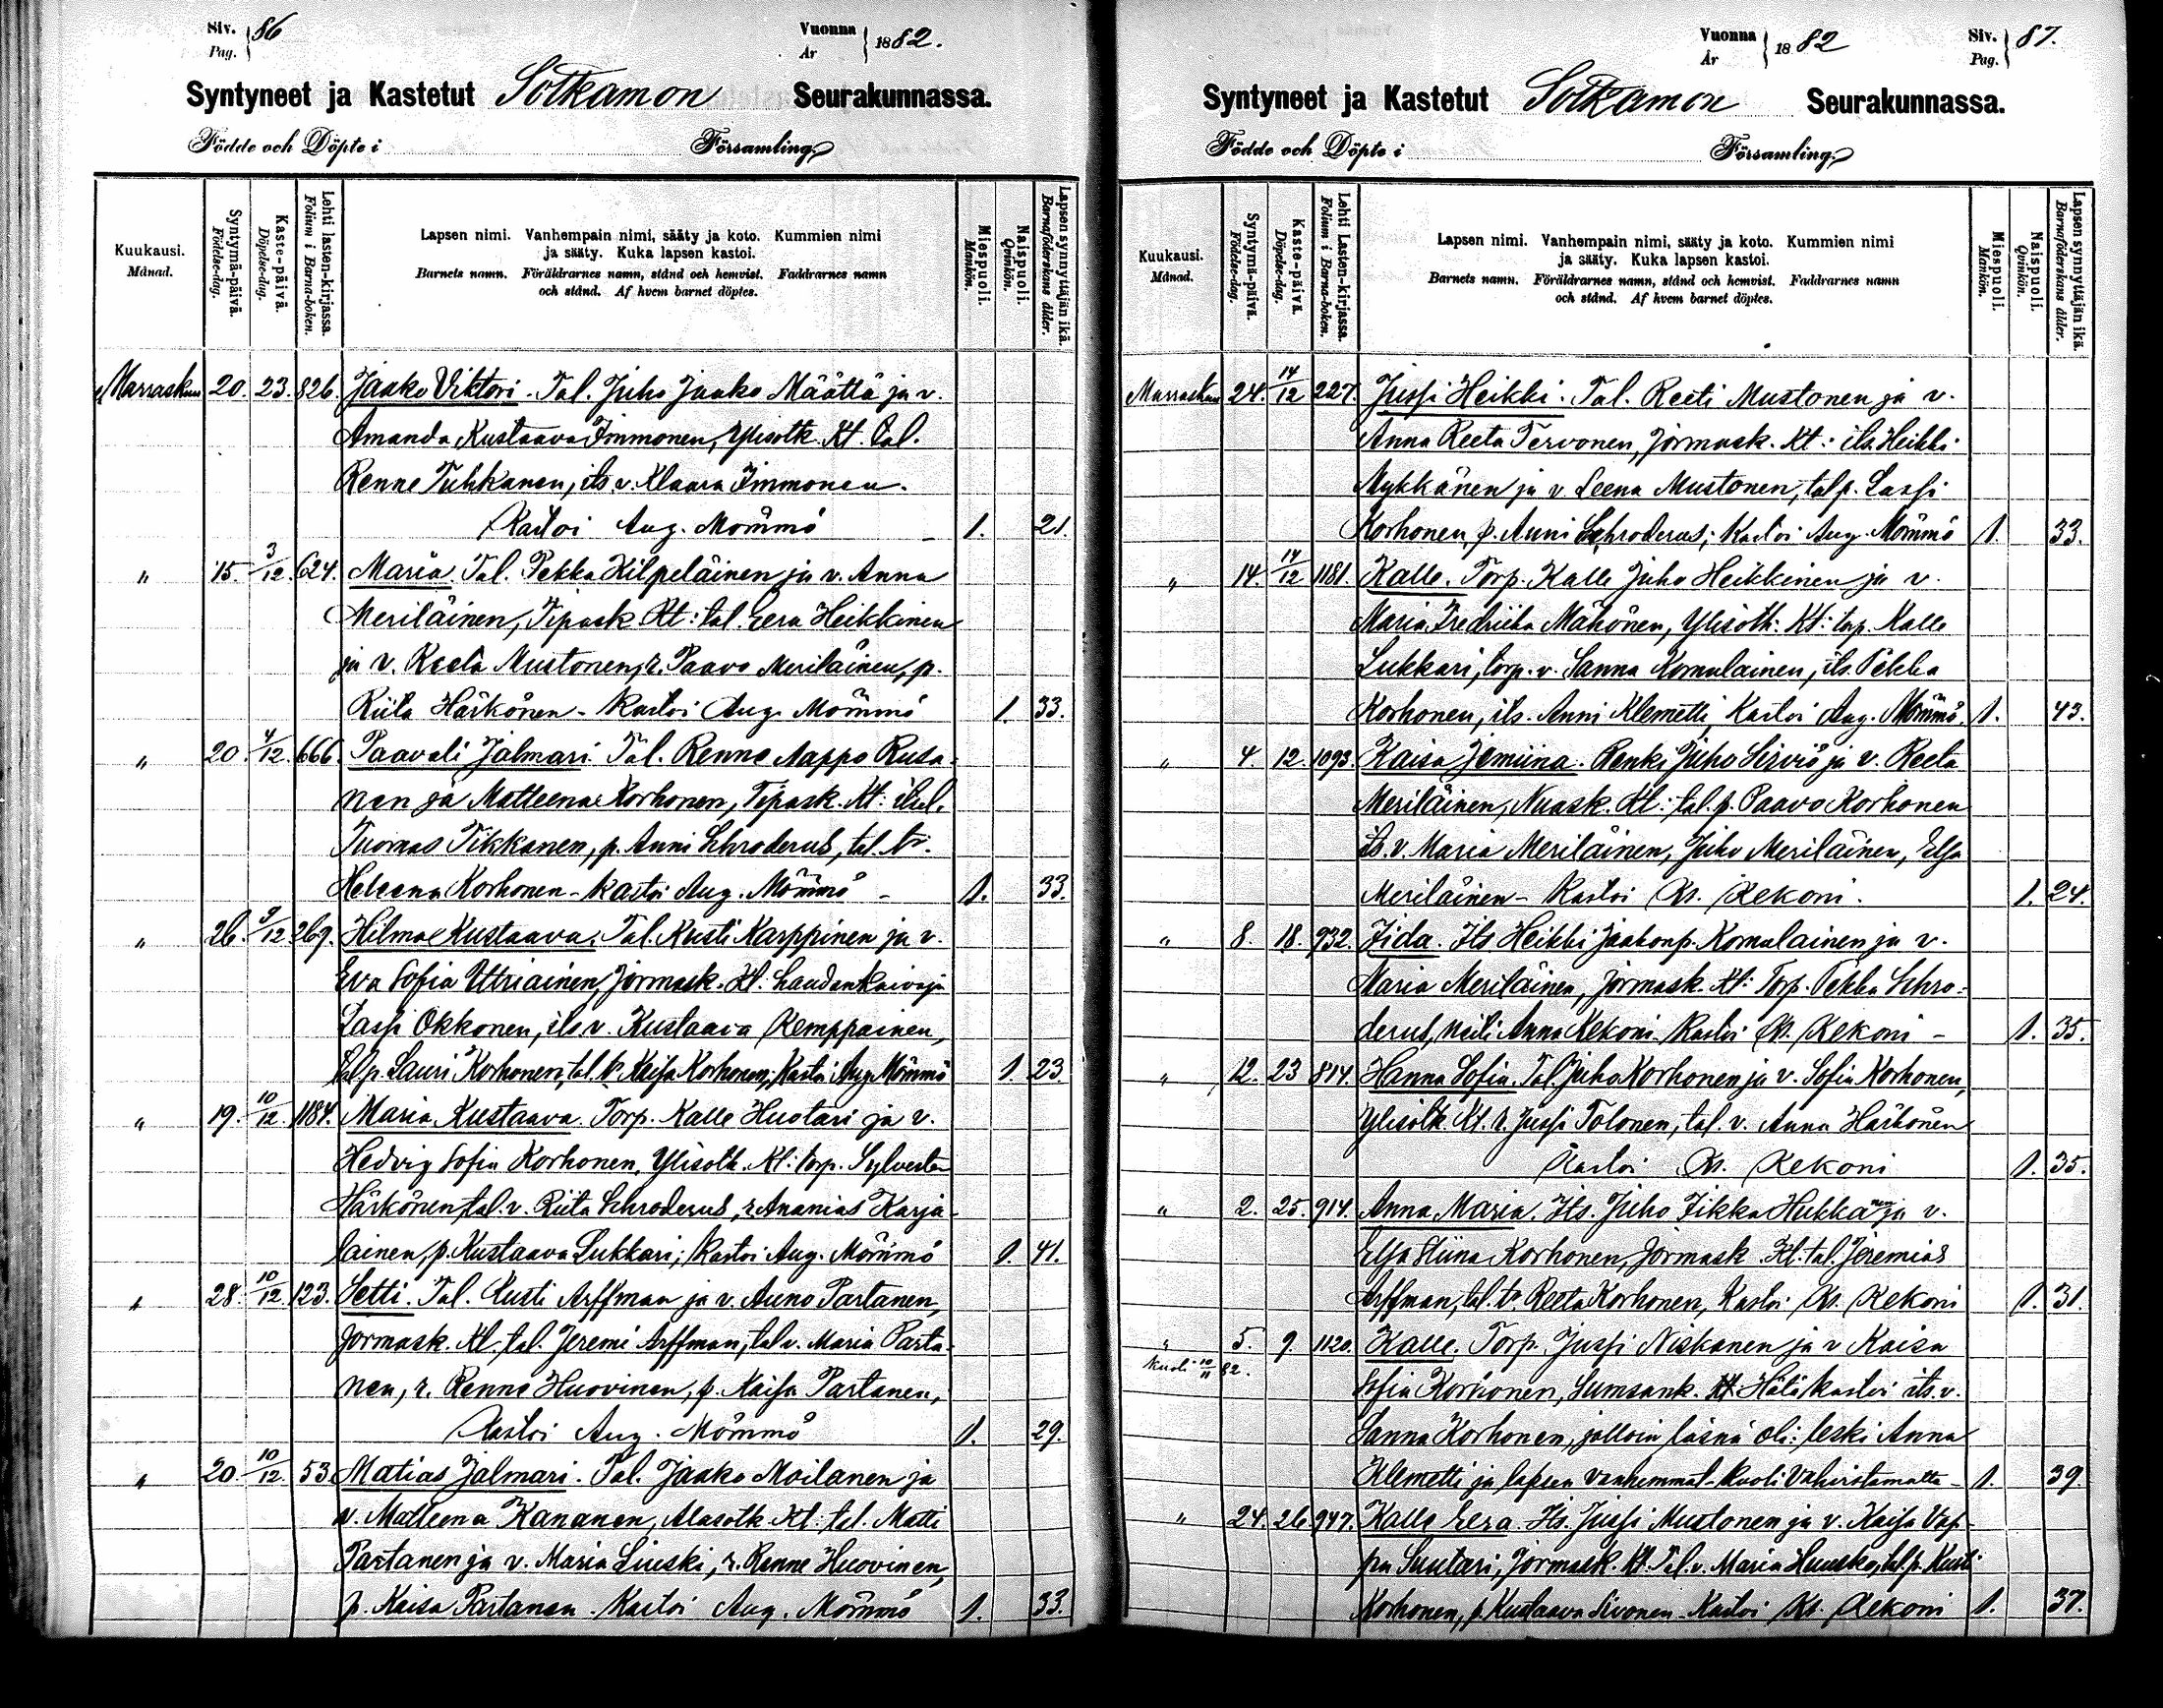 Siv. 86
Pag.
Vuonna 1882.
År
Syntyneet ja Kastetut Sotkamon Seurakunnassa.
Födde och Döpte i Församling.
Kuukausi.
Månad.
Syntymä-päivä.
Födelse-dag.
Kaste-päivä.
Döpelse-dag.
Lehti lasten-kirjassa.
Folium i Barna-boken.
Lapsen nimi. Vanhempain nimi, sääty ja koto. Kummien nimi
ja sääty. Kuka lapsen kastoi.
Barnets namn. Föräldrarnes namn, stånd och hemvist. Faddrarnes namn
och stånd. Af hvem barnet döptes.
Miespuoli.
Mankön.
Naispuoli.
Qvinkön.
Lapsen synnyttäjän ikä.
Barnaföderskans ålder.
Marraskuu 20. 23. 826. Jaako Viktori. Tal. Juho Jaako Määttä ja v.
Amanda Kustaava Immonen, Ylisotk. Kt. tal.
Renne Tuhkanen, its. v. Klaara Immonen.
Kastoi Aug. Mömmö 1. 21.
" 15. 3/12. 624. Maria. Tal. Pekka Kilpeläinen ja v. Anna
Meriläinen, Tipask. Kt: tal. Eera Heikkinen
ja v. Reeta Mustonen, r. Paavo Meriläinen, p.
Riita Härkönen - Kastoi Aug. Mömmö 1. 33.
" 20. 4/12. 666. Paavali Jalmari. Tal. Renne Aappo Rusa-
nen ja Matleena Korhonen, Tipask. Kt: tal.
Tuomas Tikkanen, p. Anni Schroderus, tal. tr.
Heleena Korhonen - Kastoi Aug. Mömmö - 1. 33.
" 26. 9/12 269. Hilma Kustaava. Tal. Kusti Karppinen ja v.
Eva Sofia Uttriainen, Jormask. Kt: haudankaivaja
Lassi Okkonen, its. v. Kustaava Kemppainen,
tal. p. Lauri Korhonen, tal. tr. Kaisa Korhonen; Kastoi Aug Mömmö 1. 23
" 19. 10/12. 1184. Maria Kustaava. Torp. Kalle Huotari ja v.
Hedvig Sofia Korhonen, Ylisotk. Kt: torp. Sylvester
Härkönen, tal. v. Riita Schroderus, r. Ananias Karja-
lainen, p. Kustaava Lukkari; Kastoi Aug. Mömmö 1. 41.
" 28. 10/12. 123. Setti. Tal. Kusti Arffman ja v. Auno Partanen,
Jormask. Kt. tal. Jeremi Arffman, tal v. Maria Parta-
nen, r. Renne Huovinen, p. Kaisa Partanen,
Kastoi Aug. Mömmö 1. 29.
" 20. 10/12. 53. Matias Jalmari. Tal. Jaako Moilanen ja
v. Matleena Kananen, Alasotk. Kt: tal. Matti
Partanen ja v. Maria Liuski, r. Renne Huovinen,
p. Kaisa Partanen. Kastoi Aug. Mömmö 1. 33.
Vuonna 1882
År
Siv. 87.
Pag.
Syntyneet ja Kastetut Sotkamon Seurakunnassa.
Födde och Döpte i Församling.
Kuukausi.
Månad.
Syntymä-päivä.
Födelse-dag.
Kaste-päivä.
Döpelse-dag.
Lehti Lasten-kirjassa.
Folium i Barna-boken.
Lapsen nimi. Vanhempain nimi, sääty ja koto. Kummien nimi
ja sääty. Kuka lapsen kastoi.
Barnets namn. Föräldrarnes namn, stånd och hemvist. Faddrarnes namn
och stånd. Af hvem barnet döptes.
Miespuoli.
Mankön.
Naispuoli.
Qvinkön.
Lapsen synnyttäjän ikä.
Barnaföderskans ålder.
Marraskuu 24. 14/12 227. Jussi Heikki. Tal. Reeti Mustonen ja v.
Anna Reeta Tervonen, Jormask. Kt: its. Heikki
Mykkänen ja v. Leena Mustonen, tal p. Lassi
Korhonen, p. Anni Schroderus; Kastoi Aug. Mömmö 1. 33.
" 14. 14/12 1181. Kalle. Torp. Kalle Juho Heikkinen ja v.
Maria Fredriika Mähönen, Ylisotk: Kt: torp. Kalle
Lukkari, torp. v. Sanna Komulainen, its. Pekka
Korhonen, its. Anni Klemetti, Kastoi Aug. Mömmö. 1. 43.
" 4 12. 1093. Kaisa Jemiina. Renki Juho Sirviö ja v. Reeta
Meriläinen, Nuask. Kt: tal. p. Paavo Korhonen
its. v. Maria Meriläinen, Juho Meriläinen, Elsa
Meriläinen - Kastoi Kr. Rekoni. 1. 24.
" 8. 18. 932. Iida. Its Heikki Jaakonp. Komulainen ja v.
Maria Meriläinen, Jormask. Kt: Torp. Pekka Schro-
derus, neiti Anna Rekoni - Kastoi Kr. Rekoni - 1. 35.
" 12. 23 814. Hanna Sofia. Tal. Juho Korhonen ja v. Sofia Korhonen,
Ylisotk. Kt. r. Jussi Tolonen, tal. v. Anna Härkönen
Kastoi Kr. Rekoni 1. 35.
" 2. 25. 914. Anna Maria. Its. Juho Iikka Hukkanen ja v.
Elsa Stiina Korhonen, Jormask. Kt: tal. Jeremias
Arffman, tal. tr. Reeta Korhonen, Kastoi Kr. Rekoni 1. 31.
" 5. 9. 1120. Kalle. Torp. Jussi Niskanen ja v Kaisa
Kuoli 10/11 82.
Sofia Korhonen, Sumsank. Kt Hätäkastoi its. v.
Sanna Korhonen, jolloin läsnä oli: leski Anna
Klemetti ja lapsen vanhemmat - Kuoli Vahvistamatta - 1. 39.
" 24. 26. 947. Kalle Eera. Its. Jussi Mustonen ja v. Kaisa Vap-
pu Suutari, Jormask. Kt. Tal. v. Maria Huusko, tal. p. Kusti
Korhonen, p. Kustaava Sivonen - Kastoi Kr. Rekoni 1. 37.